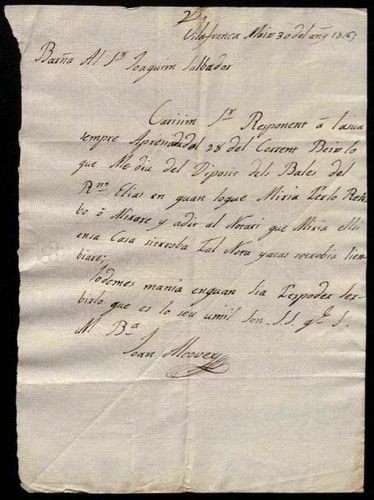 Vilafranca Maix 30 del añy 1816
Barña Al Sr Joaquim Salbador
Carisim Sr Responent á la sua
sempre Apreciada del 28 del Corrent Dei lo
que Me diu del Diposit dels Bales del
Rnt Elias en quan loque Miria Perlo
bo ó Mirare y adir al Notari que Miria
en sa Casa si troba tal Nota yacas
biare;
Jodemes mania enquan sia Perpoder ser
birlo que es lo seu umil Ser. S.S. q S.
M. Ba
Joan Alcover